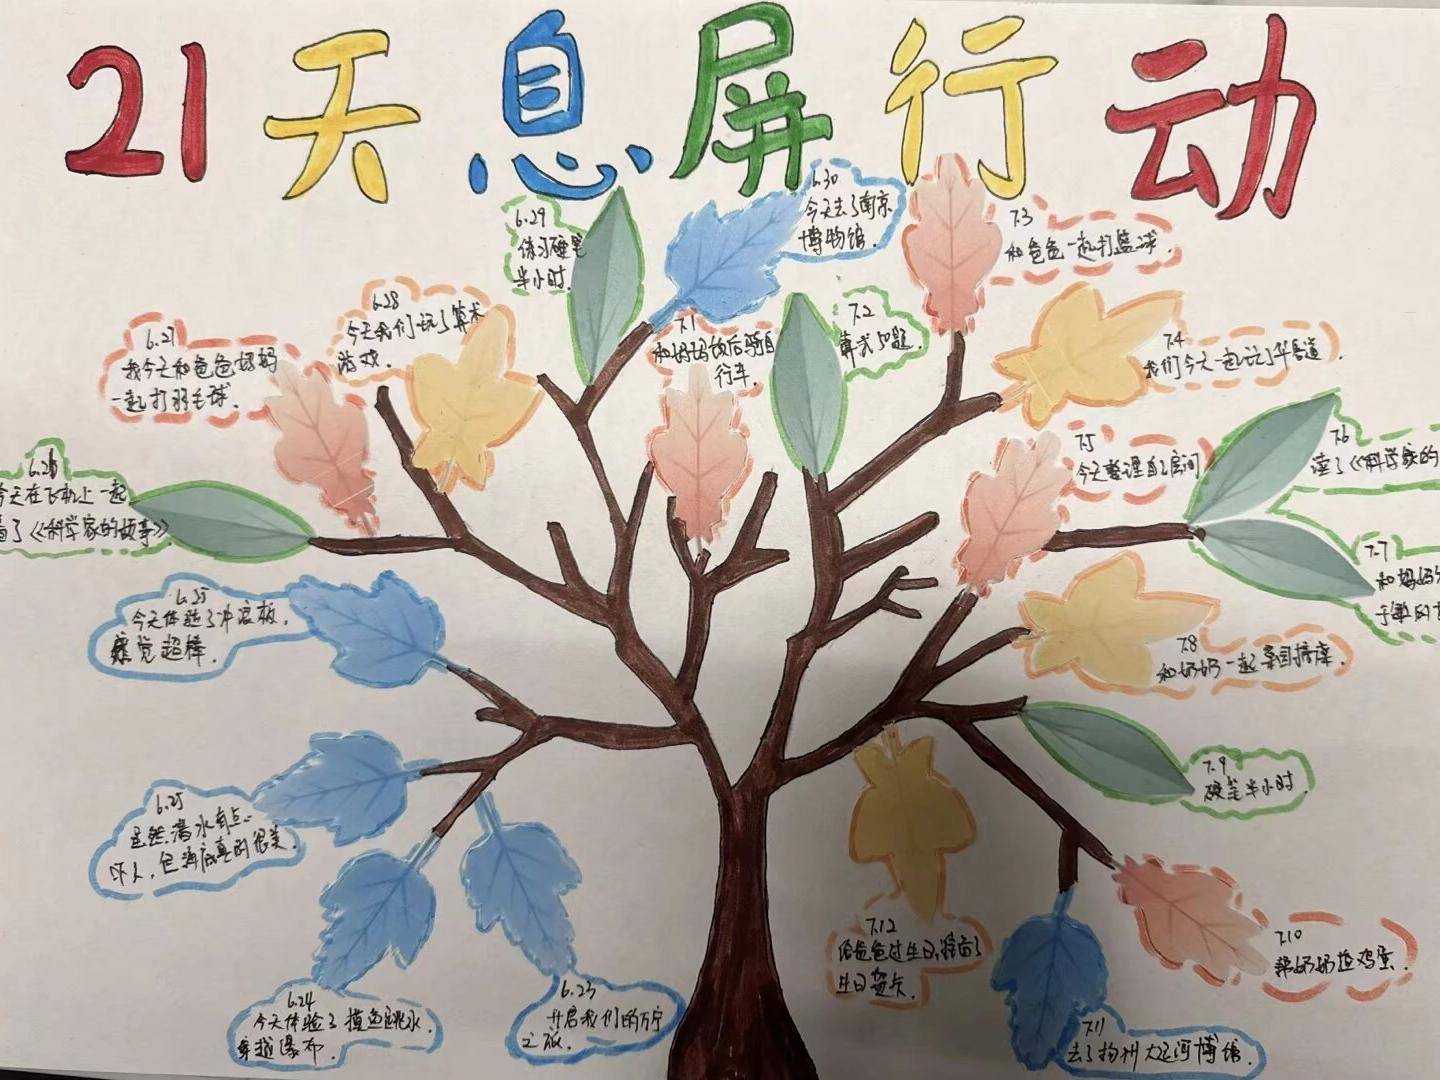 21天息屏行动
6.23
开启我们的万宁
之旅.
6.24
今天体验了摸鱼跳水
穿越瀑布.
6.25
虽然潜水有点
吓人,但海底真的很美.
6.25
今天体验了冲浪板,
感觉超棒.
6.26
今天在飞机上一起
看了《科学家的故事》
6.27
我今天和爸爸妈妈
一起打羽毛球.
6.28
今天我们玩了算术
游戏.
6.29
练习硬笔
半小时.
6.30
今天去了南京
博物馆.
7.1
和妈妈饭后骑自
行车.
7.2
算术口题.
7.3
和爸爸一起打篮球.
7.4
我们今天一起玩了华容道.
7.5
今天整理自己房间
7.6
读了《科学家的
7.7
和妈妈
7.8
和奶奶一起菜园摘菜.
7.9
硬笔半小时.
7.10
帮奶奶捡鸡蛋.
7.11
去了扬州大运河博馆.
7.12
给爸爸过生日,
生日贺卡.